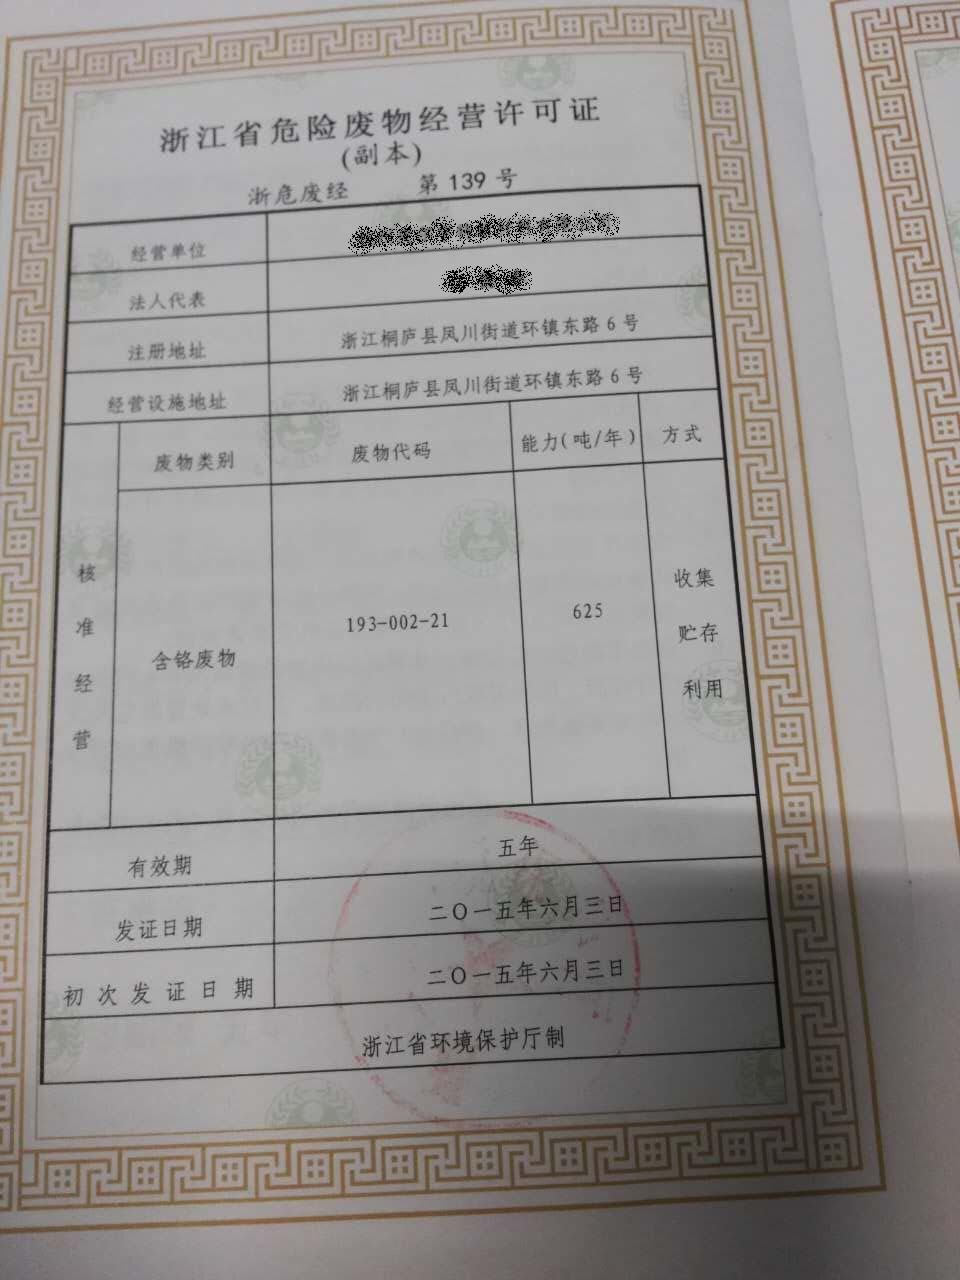 浙江省危险废物经营许可证
(副本)
浙危废经 第 139 号
经营单位
法人代表
注册地址 浙江桐庐县凤川街道环镇东路 6 号
经营设施地址 浙江桐庐县凤川街道环镇东路 6 号
核准经营
废物类别 废物代码 能力(吨/年) 方式
含铬废物 193-002-21 625 收集
贮存
利用
有效期 五年
发证日期 二〇一五年六月三日
初次发证日期 二〇一五年六月三日
浙江省环境保护厅制